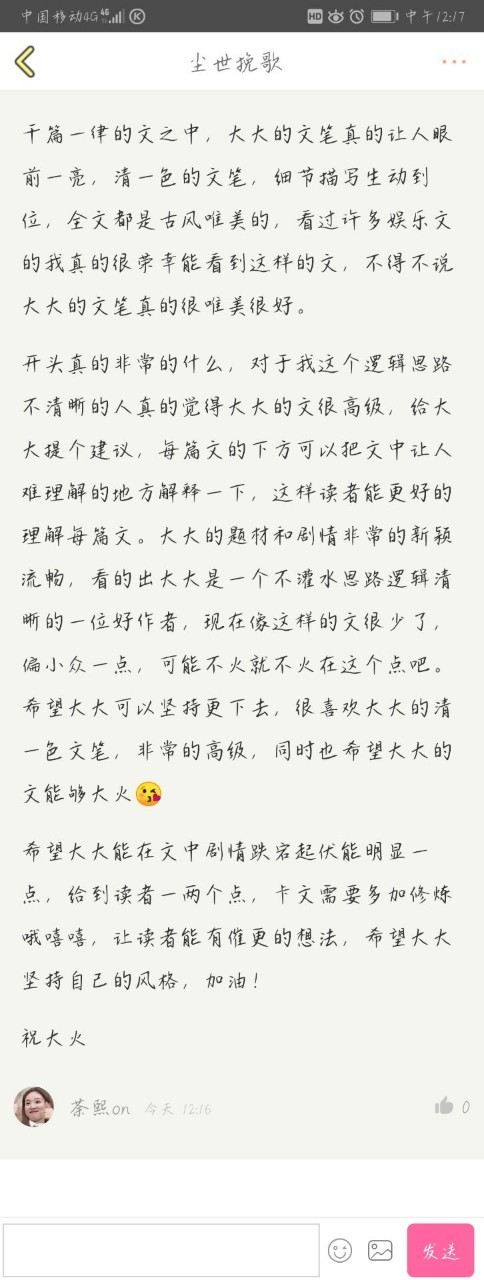 中国移动4G 4G K HD 中午12:17
尘世挽歌
千篇一律的文之中，大大的文笔真的让人眼
前一亮，清一色的文笔，细节描写生动到
位，全文都是古风唯美的，看过许多娱乐文
的我真的很荣幸能看到这样的文，不得不说
大大的文笔真的很唯美很好。
开头真的非常的什么，对于我这个逻辑思路
不清晰的人真的觉得大大的文很高级，给大
大提个建议，每篇文的下方可以把文中让人
难理解的地方解释一下，这样读者能更好的
理解每篇文。大大的题材和剧情非常的新颖
流畅，看的出大大是一个不灌水思路逻辑清
晰的一位好作者，现在像这样的文很少了，
偏小众一点，可能不火就不火在这个点吧。
希望大大可以坚持更下去，很喜欢大大的清
一色文笔，非常的高级，同时也希望大大的
文能够大火😘
希望大大能在文中剧情跌宕起伏能明显一
点，给到读者一两个点，卡文需要多加修炼
哦嘻嘻，让读者能有催更的想法，希望大大
坚持自己的风格，加油！
祝大火
茶熙on 今天 12:16 0
发送